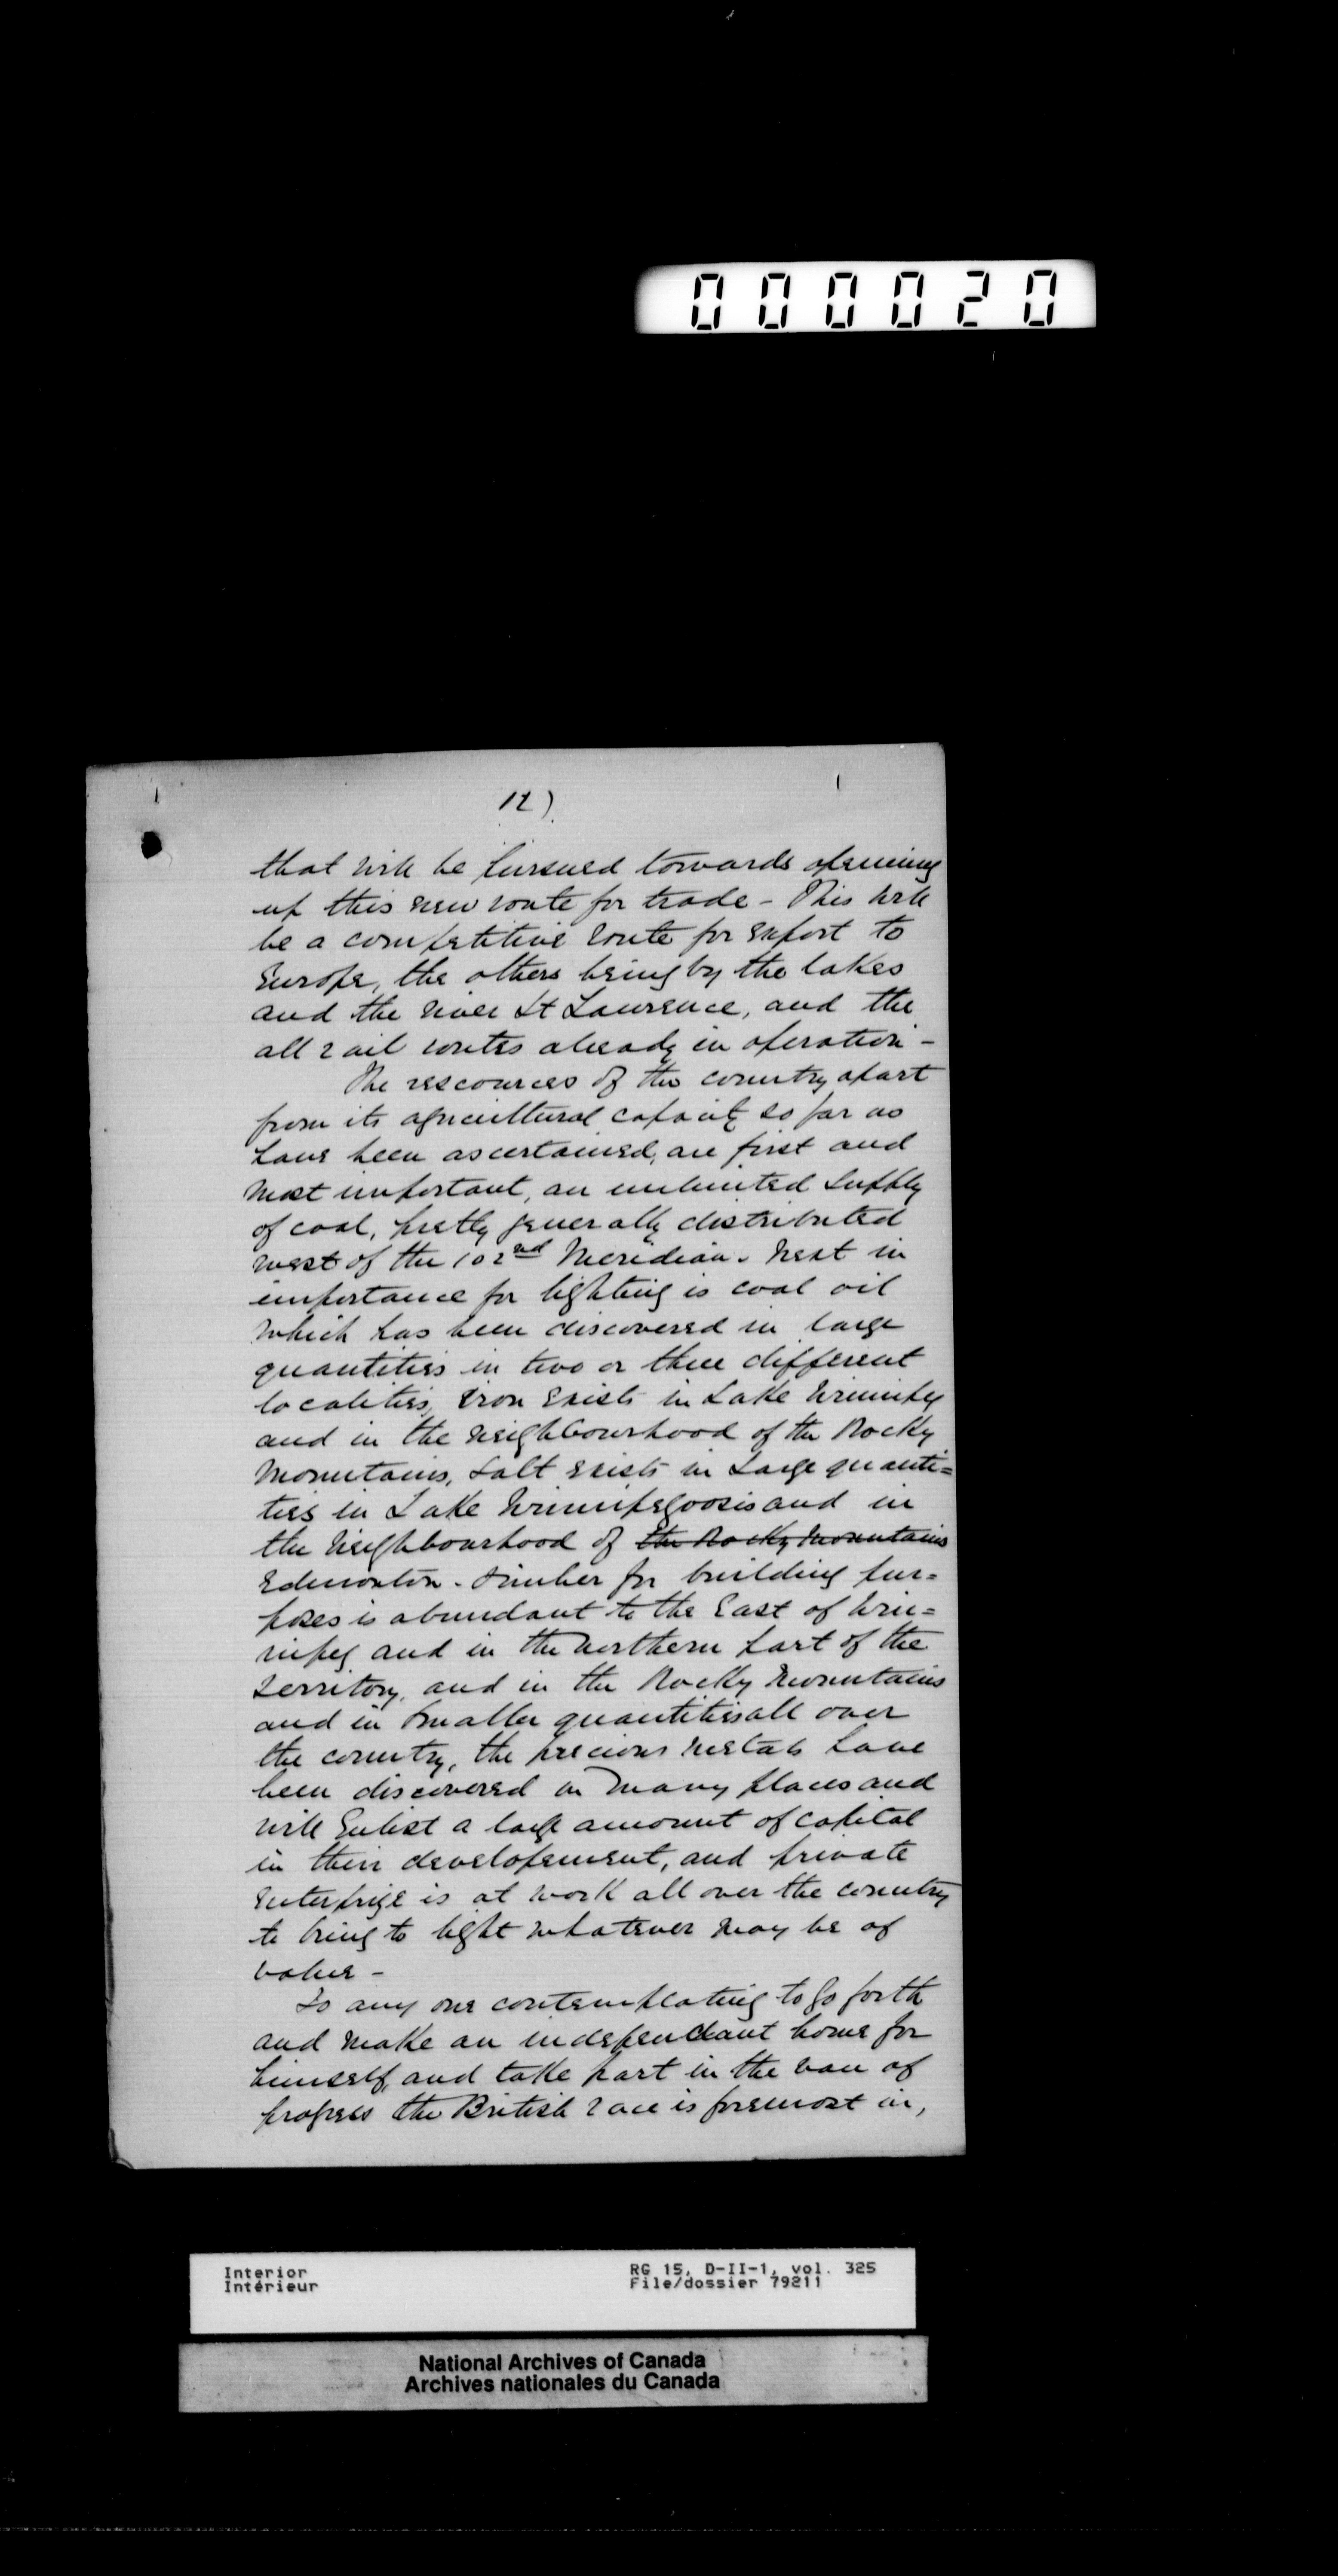 000020
12)
that will be pursued towards opening
up this new route for trade - This will
be a competitive route for export to
Europe, the others being by the lakes
and the river St Lawrence, and the
all rail routes already in operation -
The rescources of the country apart
from its agricultural capacity so far as
have been ascertained, are first and
most important, an unlimited supply
of coal, pretty generally distributed
west of the 102nd Meridian. Next in
importance for lighting is coal oil
which has been discovered in large
quantities in two or three different
localities, iron exists in Lake Winnipeg
and in the neighbourhood of the Rocky
Mountains, salt exists in large quanti=
ties in Lake Winnipegoosis and in
the neighbourhood of the Rocky Mountains
Edmonton. Timber for building pur=
poses is abundant to the East of Win=
nipeg and in the northern part of the
territory, and in the Rocky Mountains
and in smaller quantities all over
the country, the precious metals have
been discovered in many places and
will enlist a large amount of capital
in their developement, and private
enterprize is at work all over the country
to bring to light whatever may be of
value -
To any one contemplating to go forth
and make an independant home for
himself, and take part in the van of
progress the British race is foremost in,
Interior
Intérieur
RG 15, D-II-1, vol. 325
File/dossier 79211
National Archives of Canada
Archives nationales du Canada